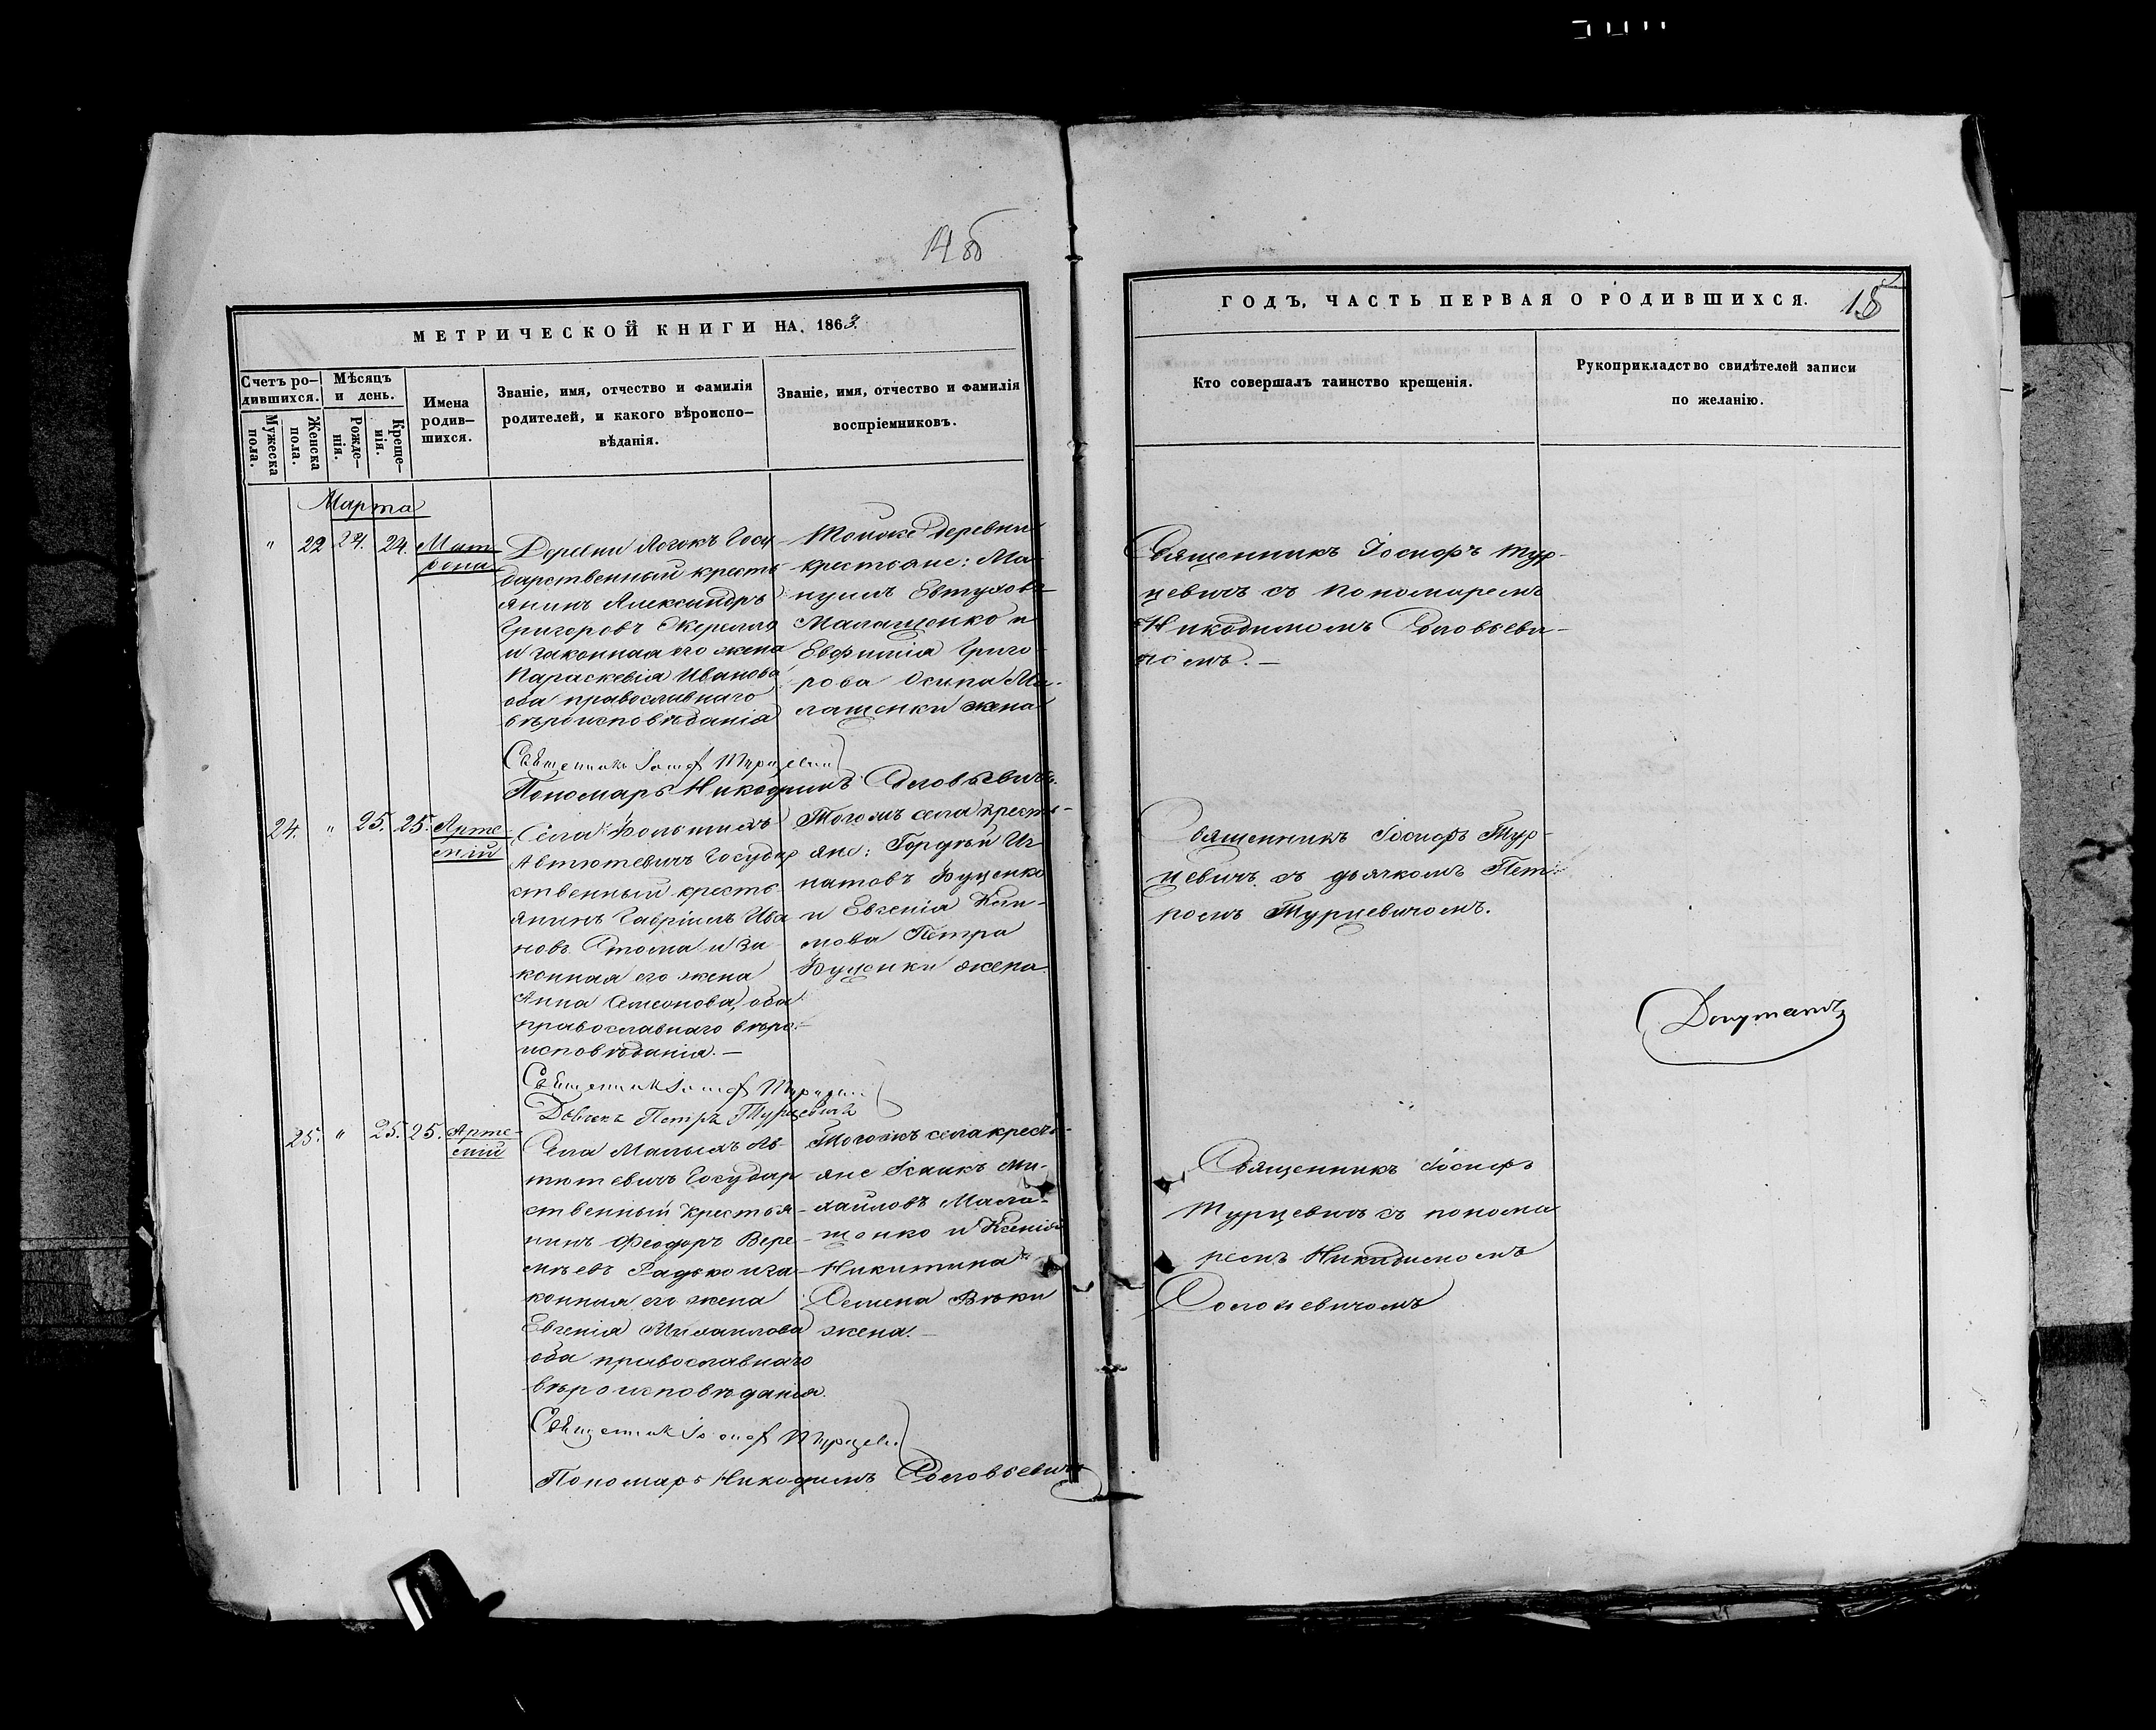 МЕТРИЧЕСКОЙ КНИГИ НА. 1863.
Счетъ ро-
дившихся.
Мѣсяцъ
и день.
Мужеска
пола.
Женска
пола.
Рожде-
нія.
Креще-
нія.
Имена
родив-
шихся.
Званіе, имя, отчество и фамилія
родителей, и какого вѣроиспо-
вѣданія.
Званіе, имя, отчество и фамилія
воспріемниковъ.
Марта
" 22 24. 24. Мат
рона
Деревни Госу
дарственный кресть
янинъ Александръ
Григоровъ
и законная его жена
Параскевія Иванова
оба православнаго
вѣроисповѣданія
Тойже деревни
крестьяне: Ма-
нуилъ Евтуховъ
Малащенко и
Евфимія Григо-
рова Осипа Ма-
лащенки жена
Священникъ Іосиф Турцевич
Пономарь Никодимъ Соловьевичъ.
24. " 25. 25. Арте-
мій
Села Большихъ
Автютевичъ Государ
ственный кресть
янинъ Гавріилъ Ива
новъ Стома и за
конная его жена
Анна Семионова, оба
православнаго вѣро-
исповѣданія. —
Тогожъ села кресть-
яне: Гордѣй Иг
натовъ Буценко
и Евгенія Кли-
мова Петра
Буценки жена
Священник Іосиф Турцевич
Дьячекъ Петръ Турцевичъ
25. " 25. 25. Арте-
мій
Села Малыхъ Ав-
тютевичъ Государ
ственный Крестья-
нинъ Феодоръ Вере-
мѣевъ Радько и за-
конная его жена
Евгенія Михаилова
оба православнаго
вѣроисповѣданія.
Тогожъ села кресть-
яне Исаакъ Ми-
хайловъ Мала-
щенко и Ксенія
Никитина
Семена Вѣки
жена. —
Священник Іосиф Турцевич
Пономарь Никодимъ Соловьевичъ
ГОДЪ, ЧАСТЬ ПЕРВАЯ О РОДИВШИХСЯ.
15
Кто совершалъ таинство крещенія.
Рукоприкладство свидѣтелей записи
по желанію.
Священникъ Іосифъ Тур-
цевичъ съ пономаремъ
Никодимомъ Соловьеви-
чомъ. —
Священникъ Іосифъ Тур-
цевичъ съ дьячкомъ Пет-
ромъ Турцевичомъ.
Священникъ Іосифъ
Турцевичъ съ понома
ремъ Никодимомъ
Соловьевичомъ